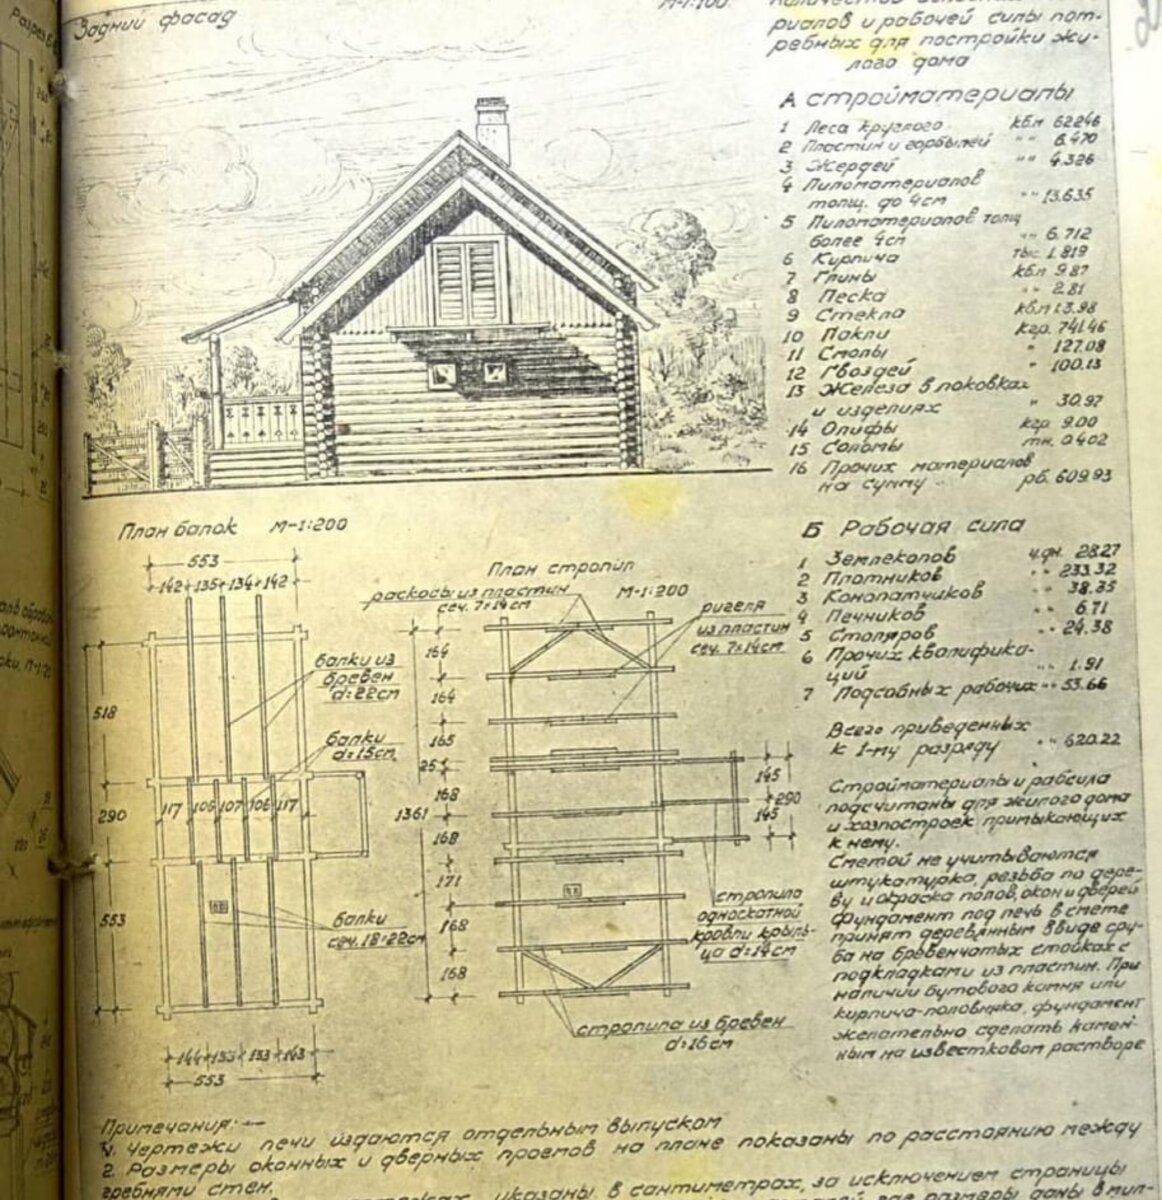 Задний фасад
М-1:100
риалов и рабочей силы пот-
ребных для постройки жи-
лого дома
А стройматериалы
1 Леса круглого кб.м 62.246
2 Пластин и горбылей " " 6.470
3 Жердей " " 4.326
4 Пиломатериалов
толщ. до 4см " " 13.635
5 Пиломатериалов толщ
более 4см " " 6.712
6 Кирпича тыс. 1.819
7 Глины кб.м 9.87
8 Песка " 2.81
9 Стекла кв.м 13.98
10 Пакли кгр. 741.46
11 Смолы " 127.08
12 Гвоздей " 100.13
13 Железа в поковках
и изделиях " 30.97
14 Олифы кгр 9.00
15 Соломы тн. 0.402
16 Прочих материалов
на сумму рб. 609.93
Б Рабочая сила
1 Землекопов ч.дн. 28.27
2 Плотников " " 233.32
3 Конопатчиков " " 38.35
4 Печников " " 6.71
5 Столяров " " 24.38
6 Прочих квалифика-
ций " " 1.91
7 Подсобных рабочих " " 53.66
Всего приведенных
к 1-му разряду " " 620.22
Стройматериалы и рабсила
подсчитаны для жилого дома
и хозпостроек примыкающих
к нему.
Сметой не учитываются
штукатурка, резьба по дере-
ву и окраска полов, окон и дверей
Фундамент под печь в смете
принят деревянным в виде сру-
ба на бревенчатых стойках с
подкладками из пластин. При
наличии бутового камня или
кирпича-половняка, фундамент
желательно сделать камен-
ным на известковом растворе
План балок М-1:200
553
142 135 134 142
518
290
553
117 106 107 106 117
балки из
бревен
d=22см
балки
d=15см
балки
сеч. 18×22см
144 133 133 143
553
План стропил
М-1:200
раскосы из пластин
сеч. 7×14см
ригеля
из пластин
сеч. 7×14см
164
164
165
25
168
1361
168
171
168
168
145
290
145
стропила
односкатной
кровли крыль-
ца d=14см
стропила из бревен
d=16см
Примечания:
1. Чертежи печи издаются отдельным выпуском
2. Размеры оконных и дверных проемов на плане показаны по расстоянию между
гребнями стен.
указаны в сантиметрах, за исключением страницы
размеры даны в мил-